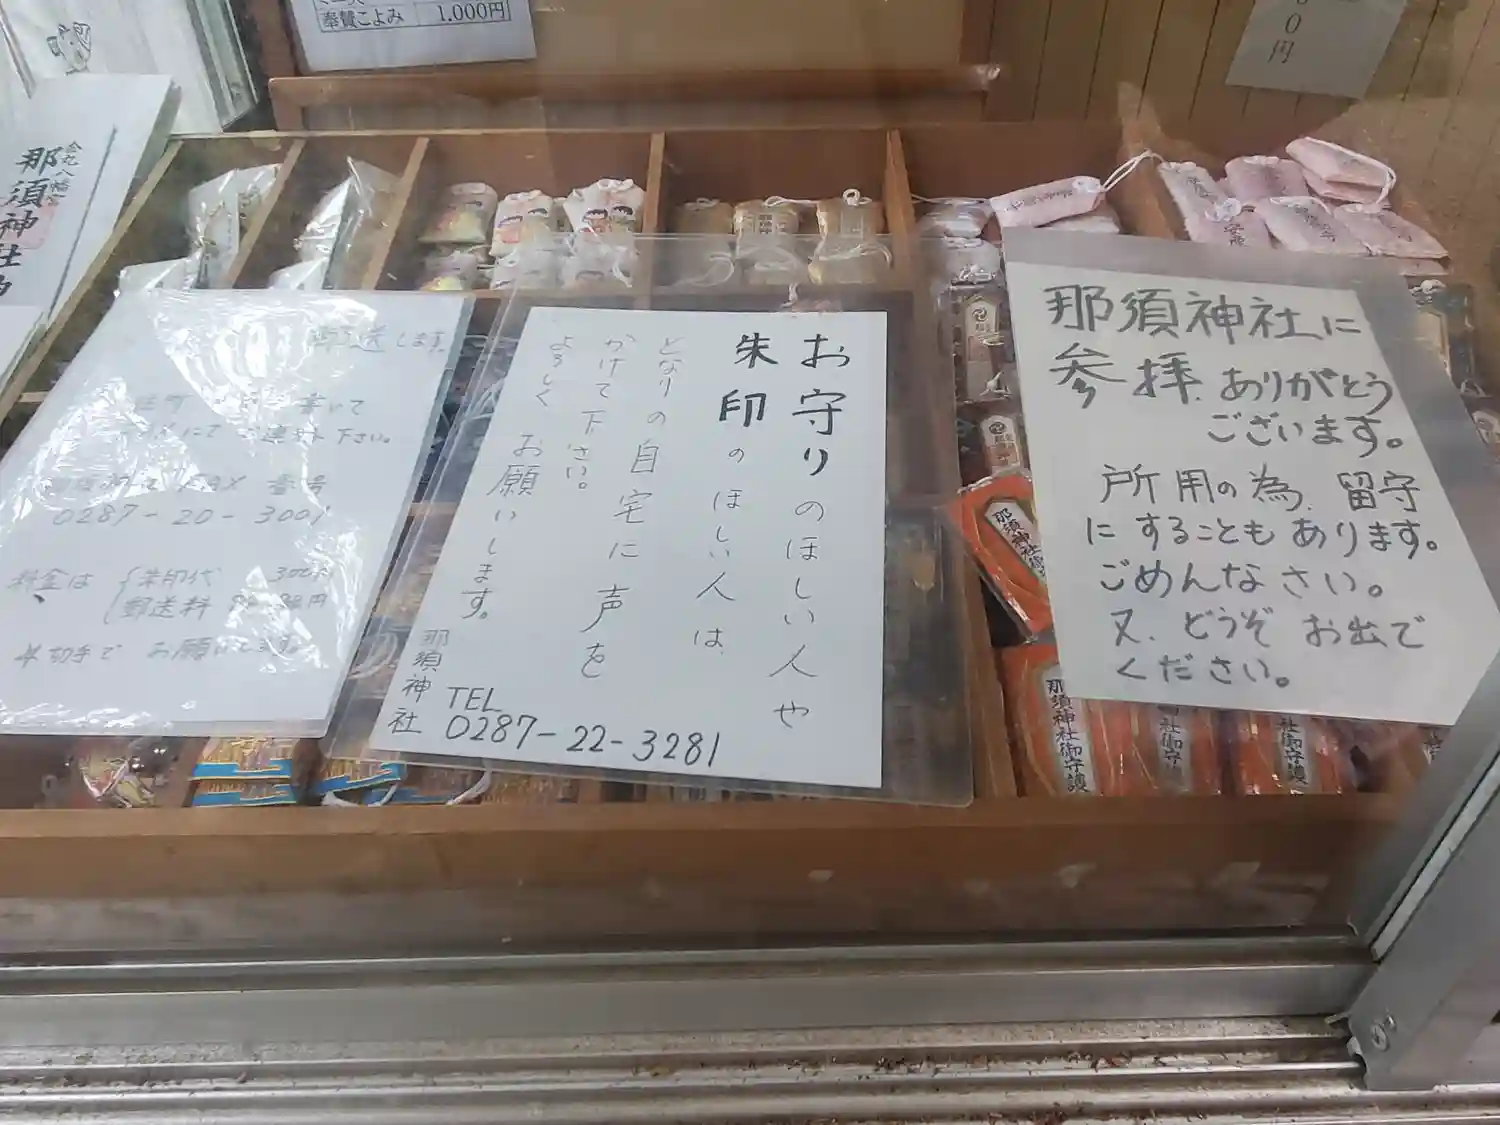 奉賛こよみ 1,000円
0円
金丸八幡宮
那須神社
那須神社に
参拝、ありがとう
ございます。
所用の為、留守
にすることもあります。
ごめんなさい。
又、どうぞ お出で
ください。
お守りのほしい人や
朱印のほしい人は、
となりの自宅に声を
かけて下さい。
よろしく お願いします。
那須神社
TEL
0287-22-3281
郵送します。
書いて
にて ご連絡下さい。
FAX 番号
0287-20-3001
料金は
朱印代 300円
郵送料
切手で お願いします。
那須神社御守護
那須神社御守護
社御守護
社御守護